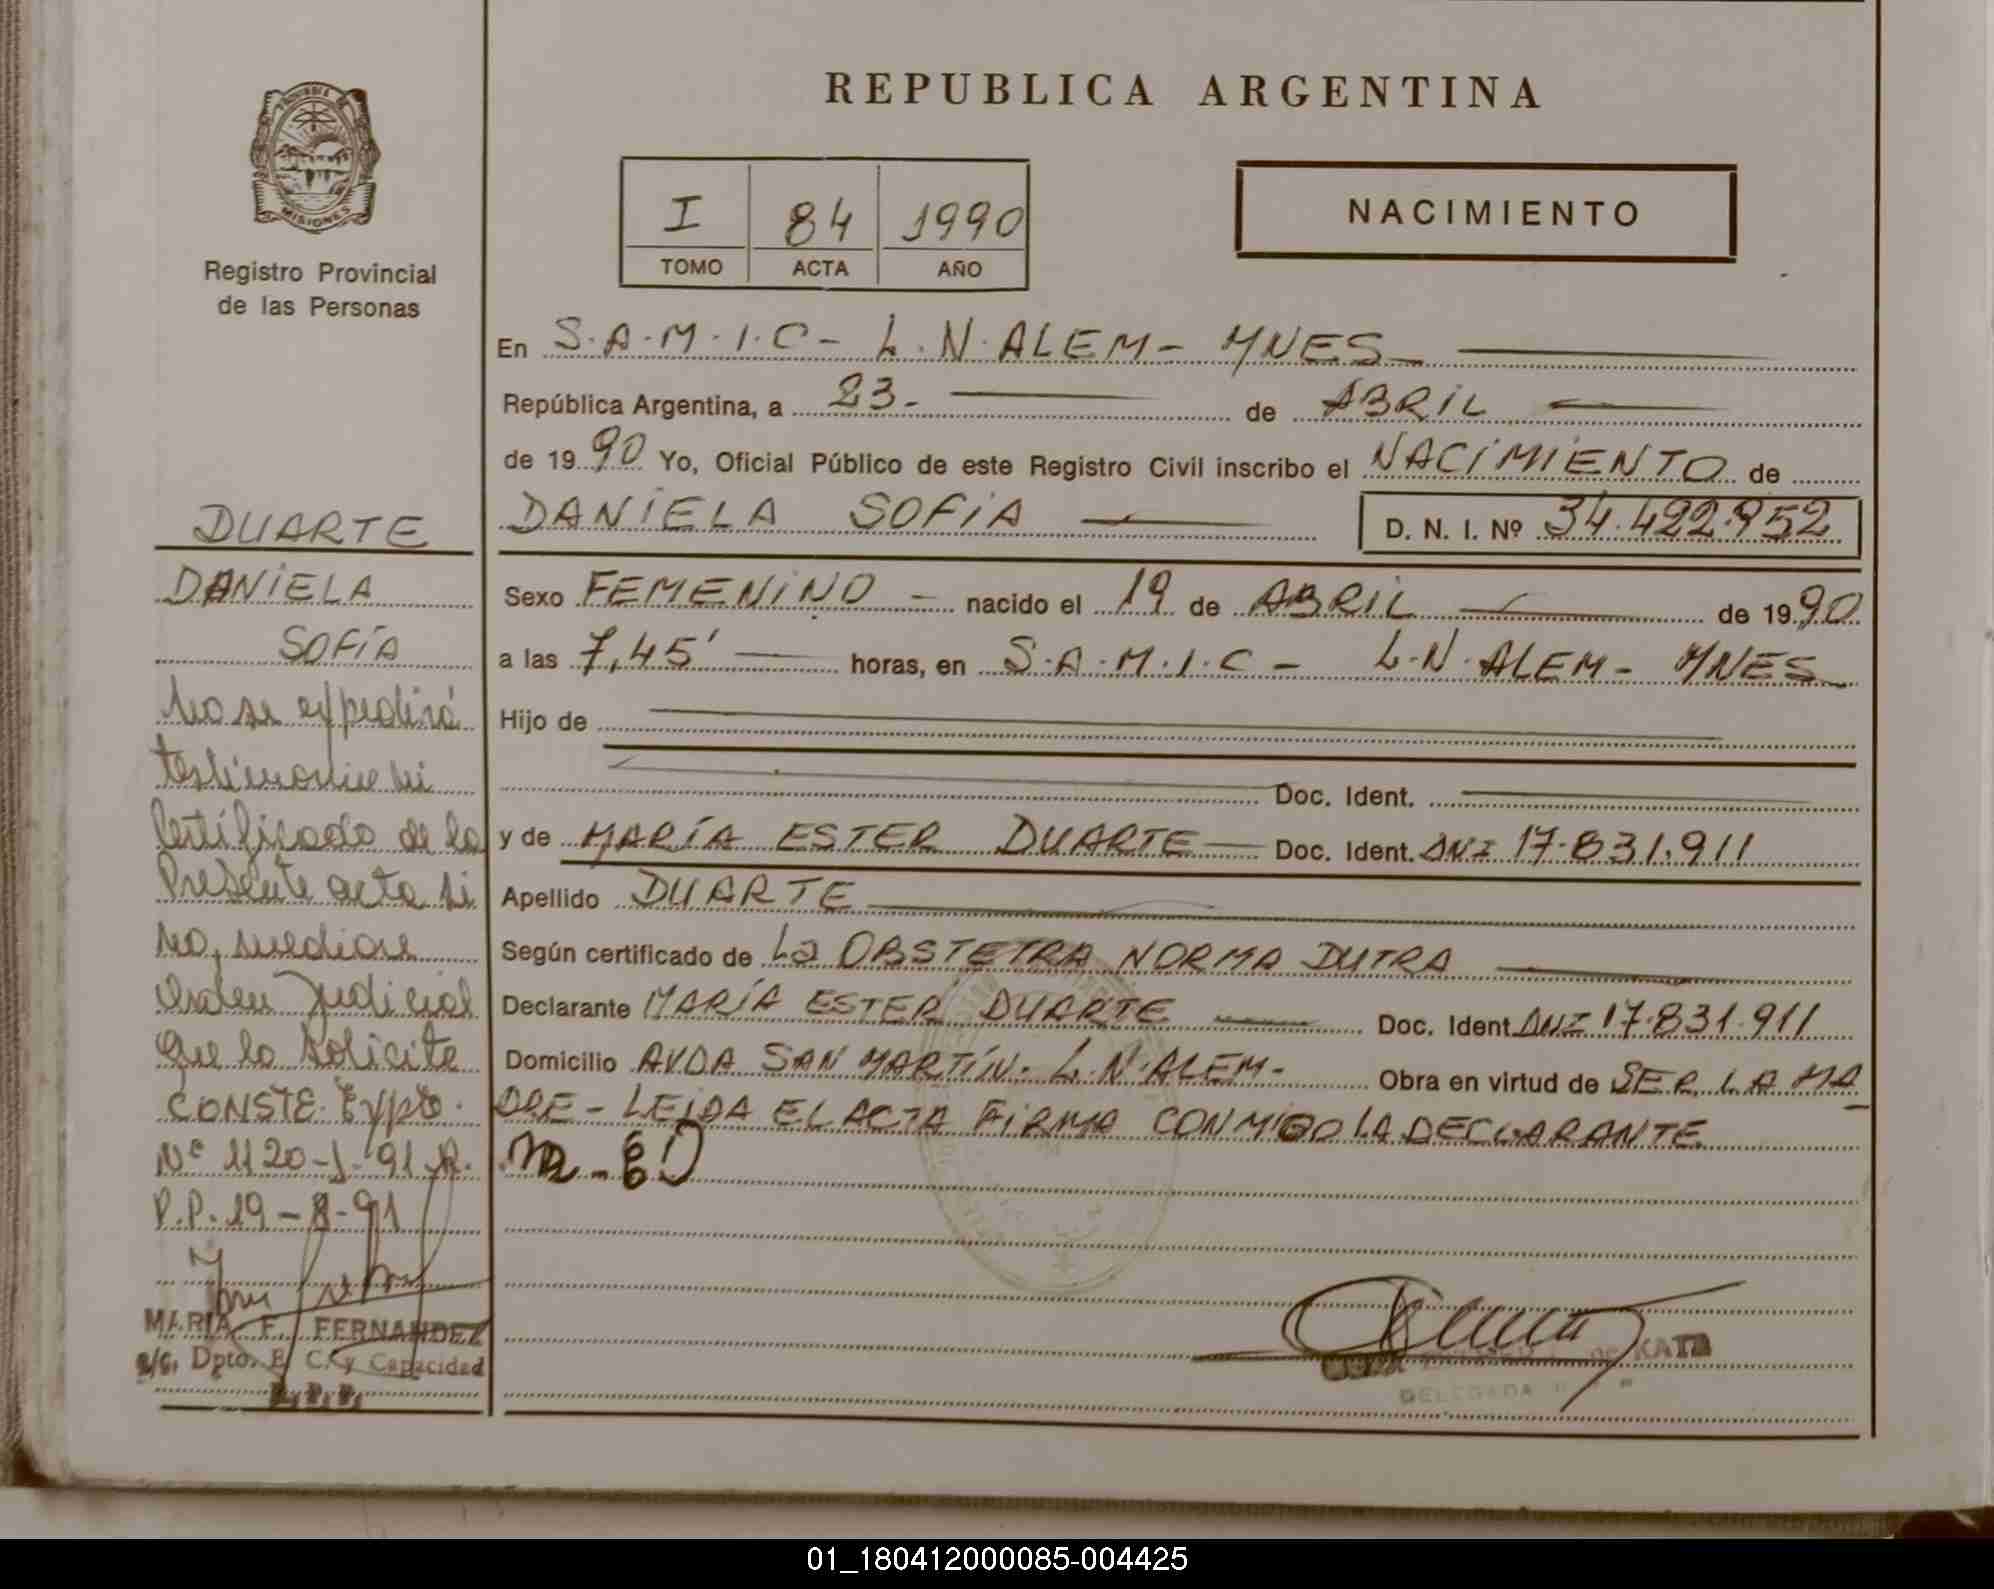 REPUBLICA ARGENTINA
PROVINCIA DE
MISIONES
Registro Provincial
de las Personas
I 84 1990
TOMO ACTA AÑO
NACIMIENTO
En S.A.M.I.C - L.N.ALEM - MNES
República Argentina, a 23 - de ABRIL
de 1990 Yo, Oficial Público de este Registro Civil inscribo el NACIMIENTO de
DANIELA SOFIA D. N. I. Nº 34.422.952
Sexo FEMENINO - nacido el 19 de ABRIL de 1990
a las 7,45' horas, en S.A.M.I.C - L.N.ALEM - MNES
Hijo de
Doc. Ident.
y de MARÍA ESTER DUARTE Doc. Ident. DNI 17.831.911
Apellido DUARTE
Según certificado de La OBSTETRA NORMA DUTRA
Declarante MARÍA ESTER DUARTE Doc. Ident DNI 17.831.911
Domicilio AVDA SAN MARTÍN. L.N.ALEM - Obra en virtud de SER LA MA
DRE - LEIDA EL ACTA FIRMA CONMIGO LA DECLARANTE.
M - E D
DELEGADA
DUARTE
DANIELA
SOFÍA
No se expedirá
testimonio ni
Certificado de la
Presente acta si
no, mediare
Orden Judicial
que lo solicite
CONSTE. Expte.
Nº 1120-J-91 R.
P.P. 19-8-91
MARIA F. FERNANDEZ
a/c. Dpto. E. C. y Capacidad
R.P.P.
01_180412000085-004425